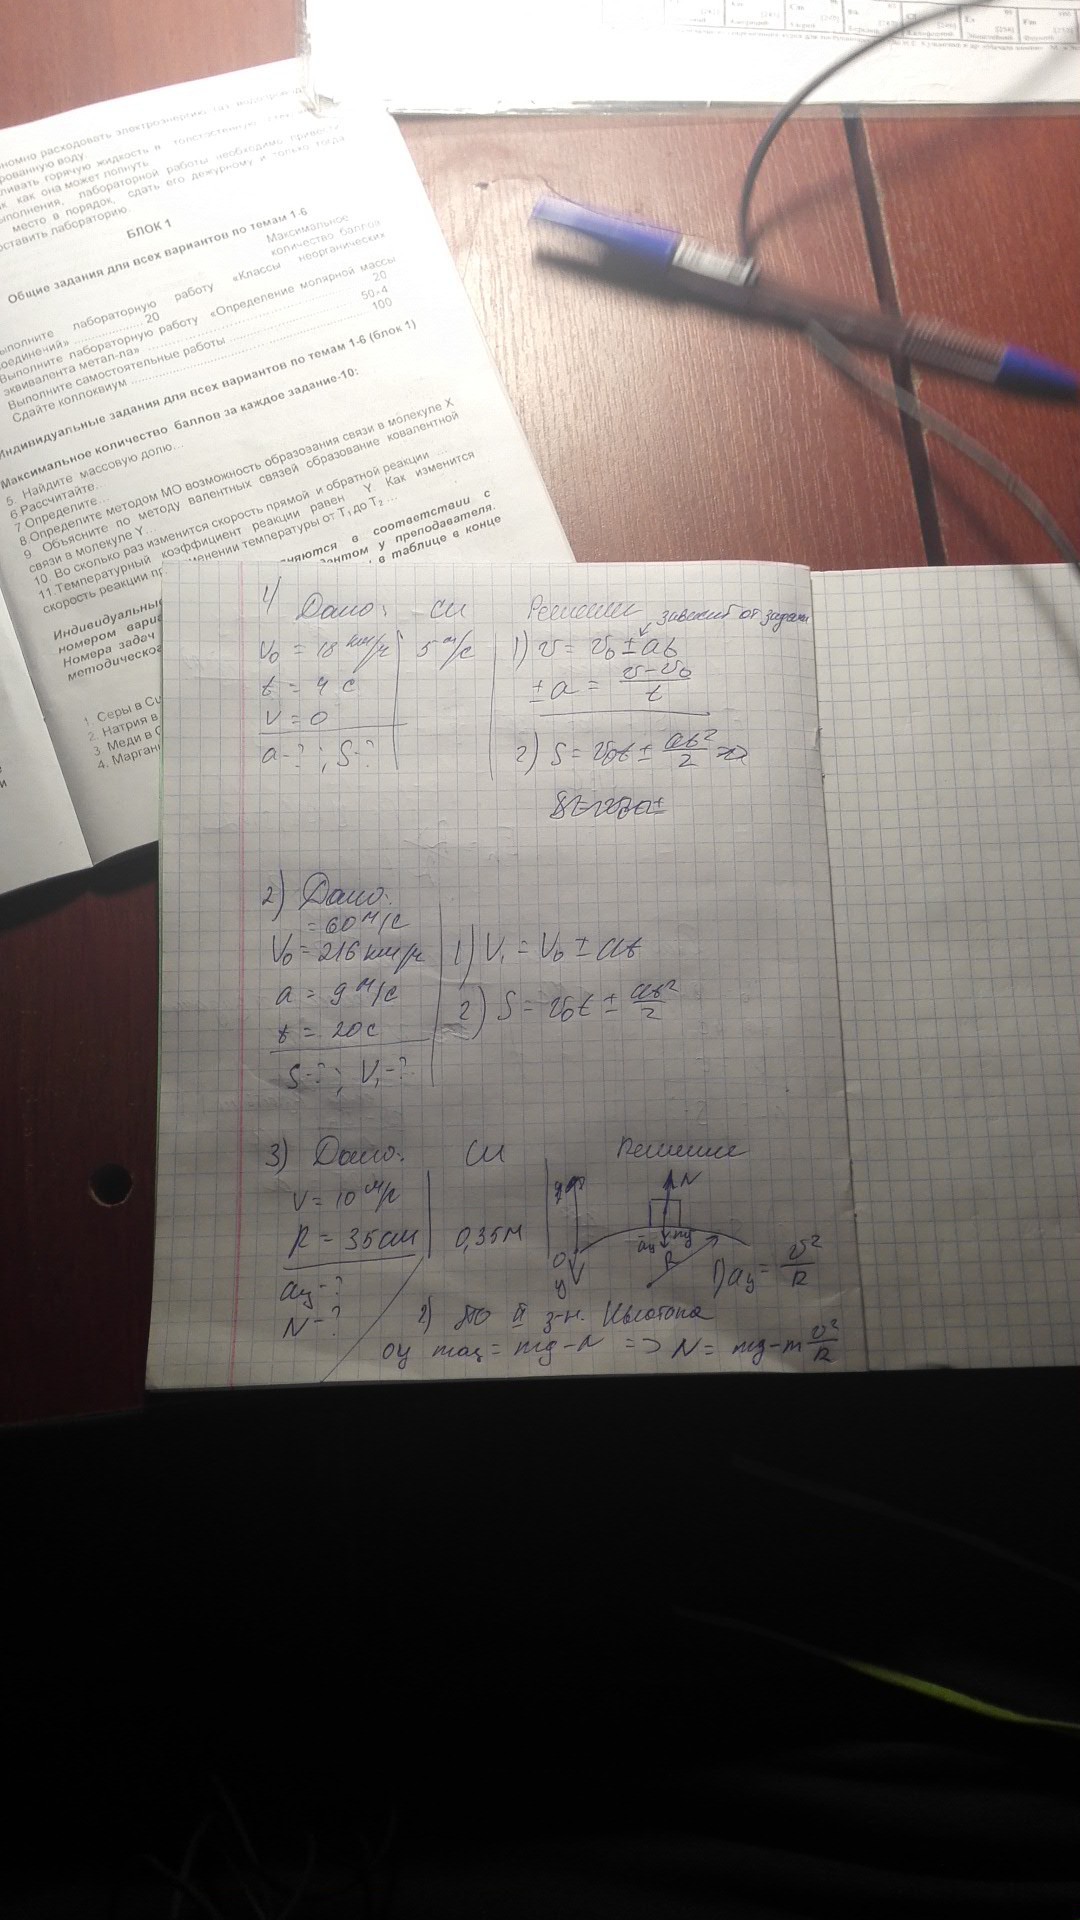 рованную воду.
ливать горячую жидкость в толстостенную
как она может лопнуть
выполнения, лабораторной работы необходимо привести
место в порядок, сдать его дежурному и только тогда
оставить лабораторию.
БЛОК 1
Общие задания для всех вариантов по темам 1-6
Максимальное
количество баллов
Выполните лабораторную работу «Классы неорганических
соединений» 20
Выполните лабораторную работу «Определение молярной массы
эквивалента метал-ла» 20
Выполните самостоятельные работы 50-4
Сдайте коллоквиум 100
Индивидуальные задания для всех вариантов по темам 1-6 (блок 1)
Максимальное количество баллов за каждое задание-10:
5. Найдите массовую долю...
6.Рассчитайте.
7 Определите...
8 Определите методом МО возможность образования связи в молекуле X
9 Объясните по методу валентных связей образование ковалентной
связи в молекуле Y...
10. Во сколько раз изменится скорость прямой и обратной реакции ...
11.Температурный коэффициент реакции равен Y. Как изменится
скорость реакции при изменении температуры от T₁ до T₂ ...
няются в соответствии с
нтом у преподавателя.
в таблице в конце
Индивидуальные
номером вари
Номера задач
методическое
1. Серы в
2. Натрия в
3. Меди в
4. Марган
1) Дано: СИ Решение зависит от задачи
V₀ = 18 км/ч 5 м/с 1) v = v₀ ± at
t = 4 c ±a = v-v₀/t
v = 0
a-? ; S-? 2) S = v₀t ± at²/2
2) Дано:
= 60 м/с
V₀ = 216 км/ч 1) V₁ = V₀ ± at
a = 9 м/с 2) S = v₀t ± at²/2
t = 20c
S-? ; V₁-?
3) Дано: СИ Решение
V = 10 м/с N
R = 35 см 0,35м aц mg
R
0
y
aц-? 1) aц = v²/R
N-? 2) по II з-н. Ньютона
оy maц = mg-N => N = mg-m v²/R